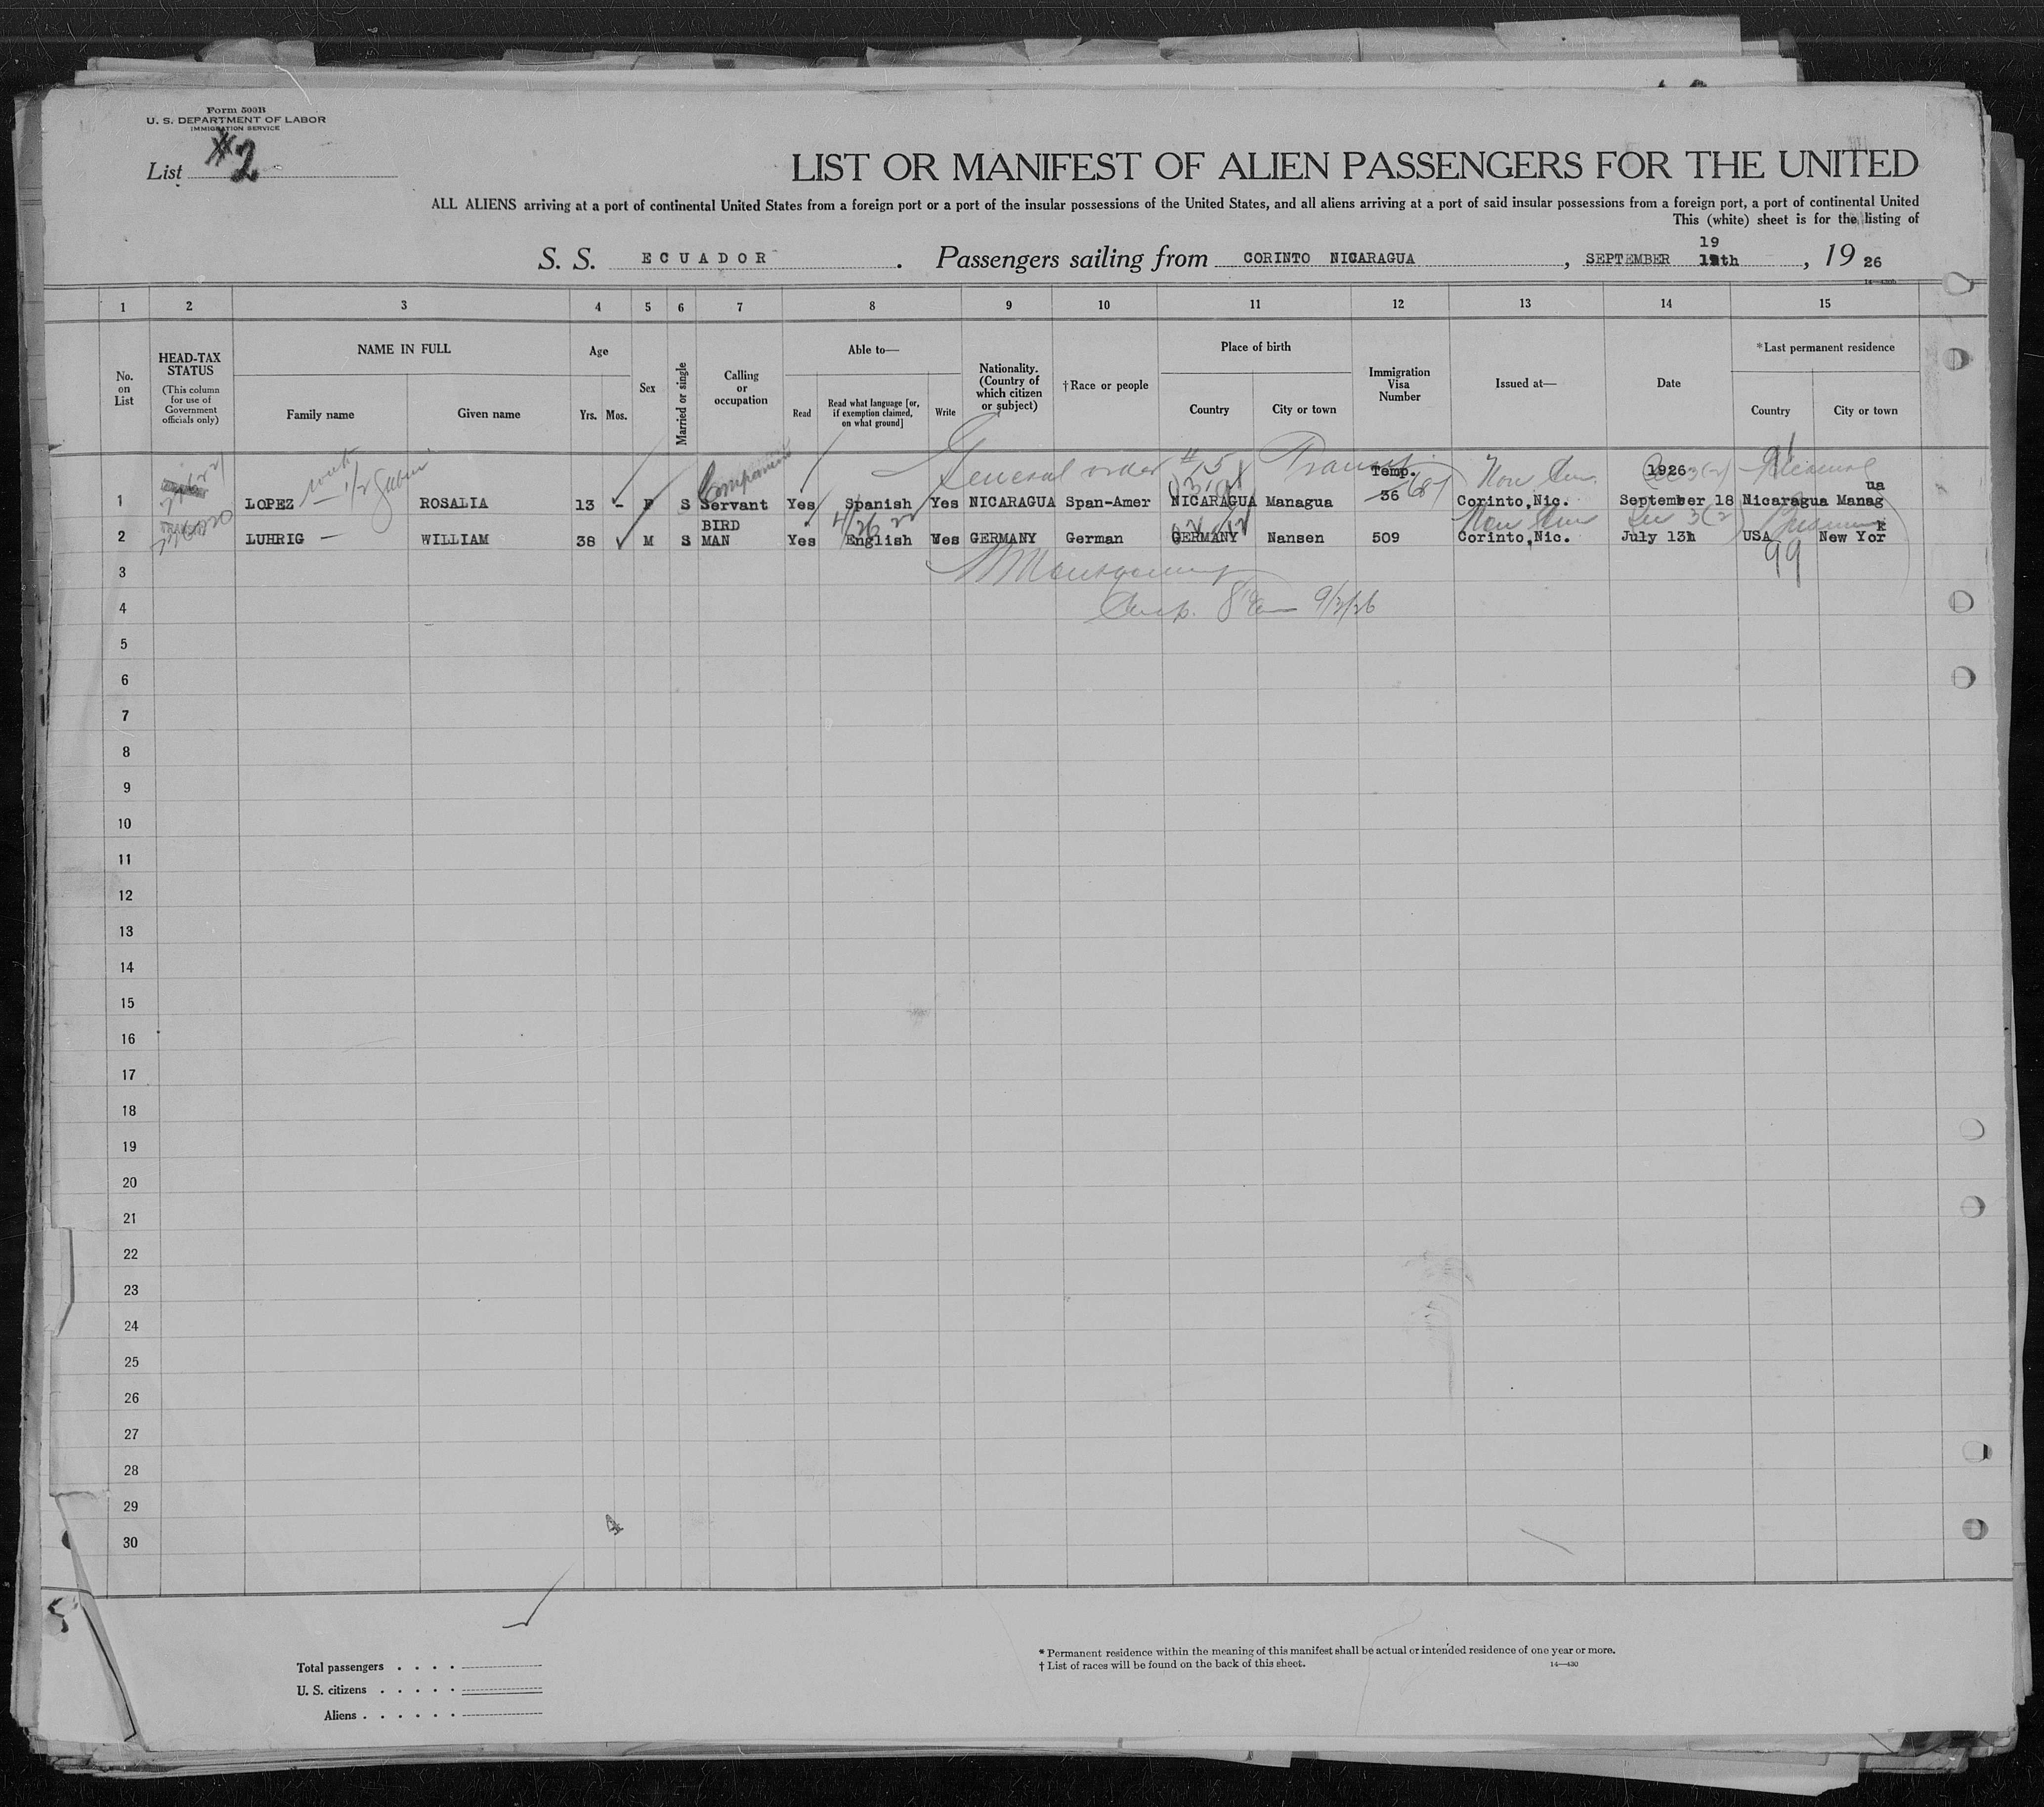 Form 500B
U. S. DEPARTMENT OF LABOR
IMMIGRATION SERVICE
List #2
LIST OR MANIFEST OF ALIEN PASSENGERS FOR THE UNITED
ALL ALIENS arriving at a port of continental United States from a foreign port or a port of the insular possessions of the United States, and all aliens arriving at a port of said insular possessions from a foreign port, a port of continental United
This (white) sheet is for the listing of
S. S. ECUADOR . Passengers sailing from CORINTO NICARAGUA , SEPTEMBER 19 th , 19 26
1 2 3 4 5 6 7 8 9 10 11 12 13 14 15
No. on List
HEAD-TAX STATUS
(This column for use of Government officials only)
NAME IN FULL
Family name Given name
Age
Yrs. Mos.
Sex
Married or single
Calling or occupation
Able to—
Read Read what language [or, if exemption claimed, on what ground] Write
Nationality. (Country of which citizen or subject)
†Race or people
Place of birth
Country City or town
Immigration Visa Number
Issued at—
Date
*Last permanent residence
Country City or town
General order #15 Transit
Temp. 1926
1 LOPEZ ROSALIA 13 - F S Servant Yes Spanish Yes NICARAGUA Span-Amer NICARAGUA Managua 36 Corinto,Nic. September 18 Nicaragua Managua
2 LUHRIG — WILLIAM 38 M S BIRD MAN Yes English Yes GERMANY German GERMANY Nansen 509 Corinto,Nic. July 13h USA New York
99
3 Montgomery
4
5
6
7
8
9
10
11
12
13
14
15
16
17
18
19
20
21
22
23
24
25
26
27
28
29
30
4
Total passengers . . . .
U. S. citizens . . . . .
Aliens . . . . . .
* Permanent residence within the meaning of this manifest shall be actual or intended residence of one year or more.
† List of races will be found on the back of this sheet.
14—430